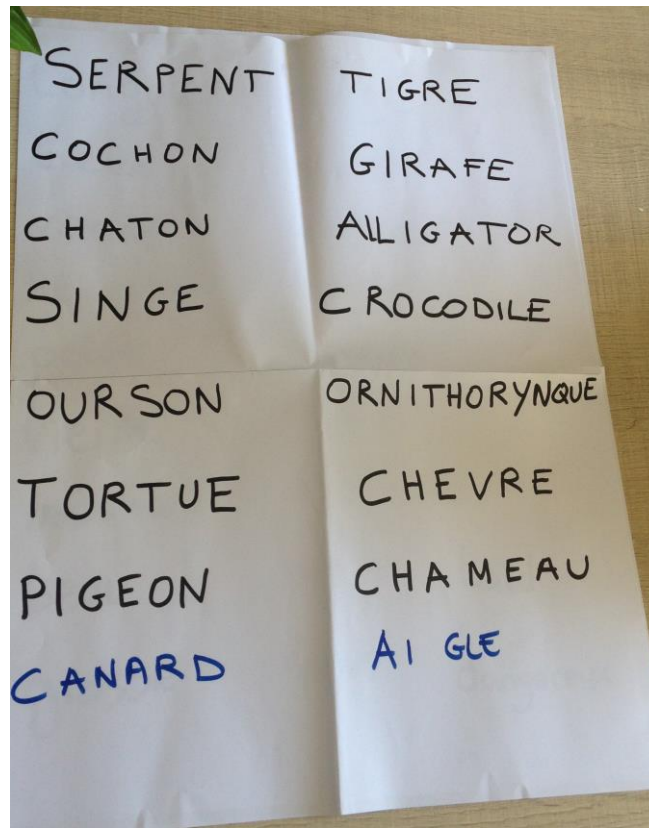 SERPENT
COCHON
CHATON
SINGE
OURSON
TORTUE
PIGEON
CANARD
TIGRE
GIRAFE
ALLIGATOR
CROCODILE
ORNITHORYNQUE
CHEVRE
CHAMEAU
AIGLE